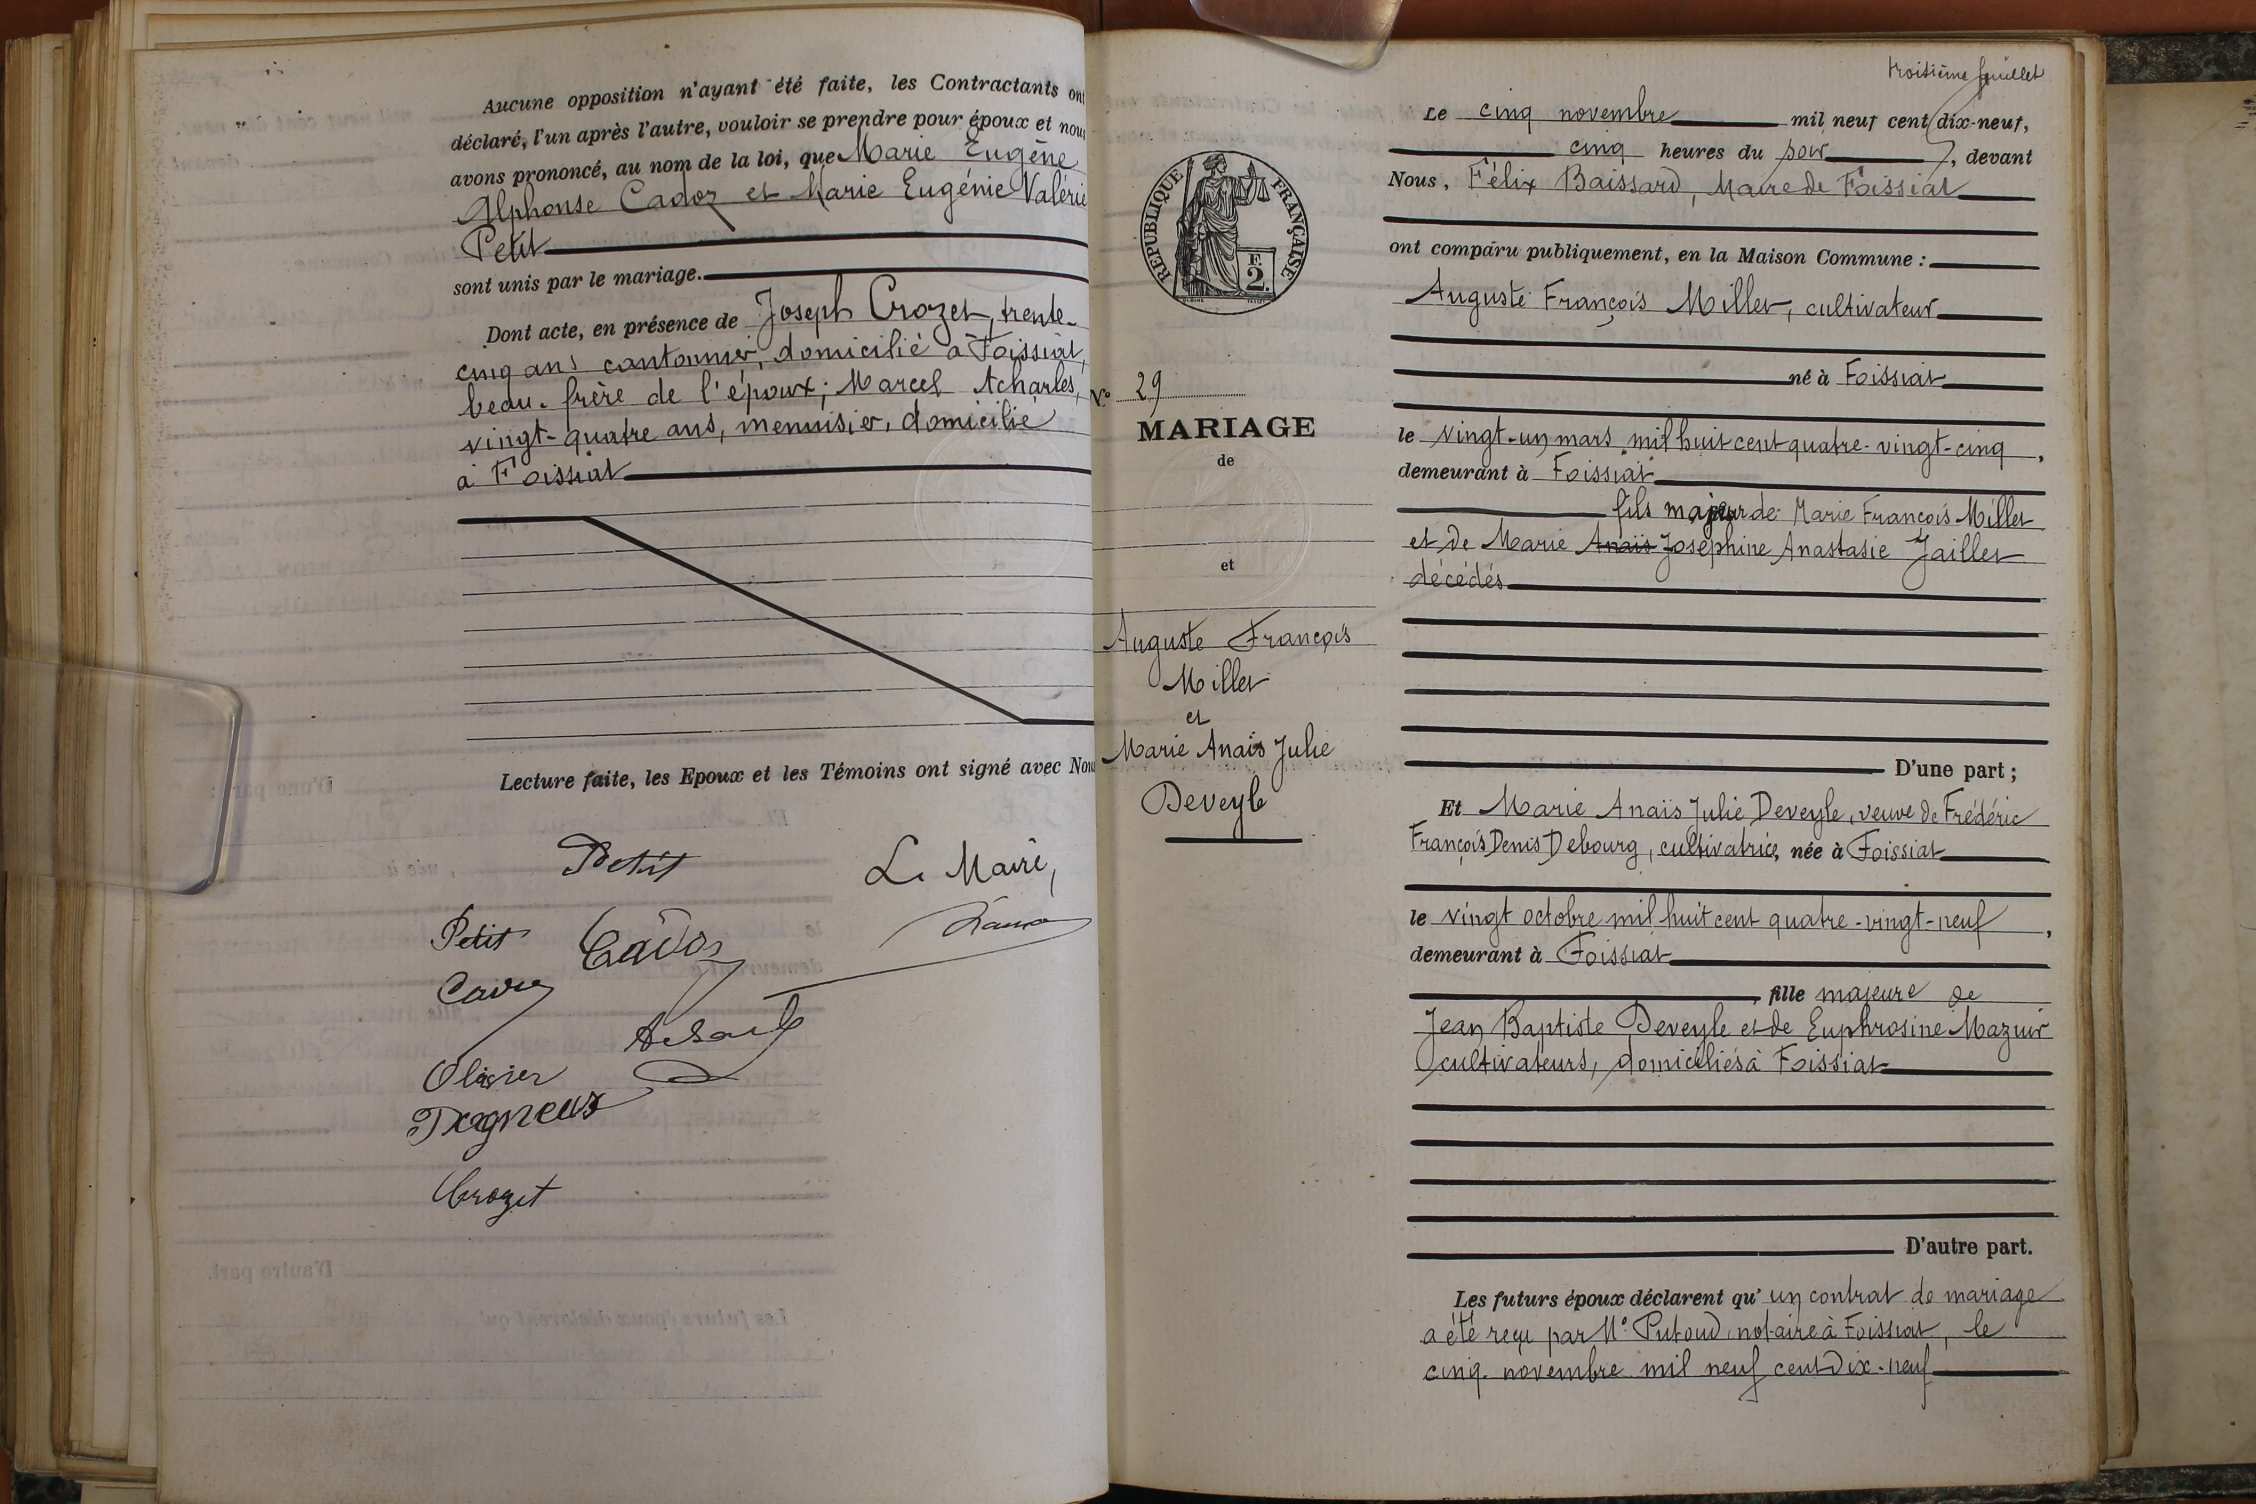 Aucune opposition n'ayant été faite, les Contractants ont
déclaré, l'un après l'autre, vouloir se prendre pour époux et nous
avons prononcé, au nom de la loi, que Marie Eugène
Alphonse Cadoz et Marie Eugénie Valérie
Petit
sont unis par le mariage.
Dont acte, en présence de Joseph Crozet, trente-
cinq ans cantonnier, domicilié à Foissiat,
beau-frère de l'époux; Marcel Acharles,
vingt-quatre ans, menuisier, domicilié
à Foissiat
Lecture faite, les Epoux et les Témoins ont signé avec Nous
Petit
Le Maire,
Petit Cadoz
Olivier
Tragneux
Crozet
troisième feuillet
RÉPUBLIQUE FRANÇAISE
F.
2.
N° 29
MARIAGE
de
et
Auguste François
Millet
et
Marie Anaïs Julie
Deveyle
Le cinq novembre mil neuf cent dix-neuf,
cinq heures du soir, devant
Nous, Félix Baissard, Maire de Foissiat
ont comparu publiquement, en la Maison Commune :
Auguste François Millet, cultivateur
né à Foissiat
le vingt-un mars mil huit cent quatre-vingt-cinq,
demeurant à Foissiat
fils majeur de Marie François Millet
et de Marie Anaïs Joséphine Anastasie Jaillet
décédés
D'une part ;
Et Marie Anaïs Julie Deveyle, veuve de Frédéric
François Denis Debourg, cultivatrice, née à Foissiat
le vingt octobre mil huit cent quatre-vingt-neuf,
demeurant à Foissiat
fille majeure de
Jean Baptiste Deveyle et de Euphrosine Mazuir
cultivateurs, domiciliés à Foissiat
D'autre part.
Les futurs époux déclarent qu'un contrat de mariage
a été reçu par M° Putoud, notaire à Foissiat, le
cinq novembre mil neuf cent dix-neuf